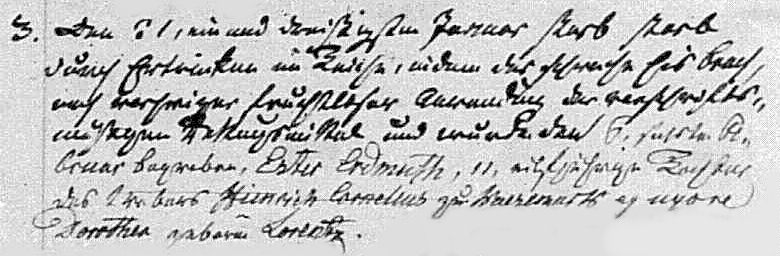 3. Den 31, ein und dreißigsten Januar starb starb
durch Ertrinken im Teiche, indem das schwache Eis brach,
nach vorheriger fruchtloser Anwendung der vorschrifts-
mäßigen Rettungsmittel und wurde den 6. sechsten Fe-
bruar begraben, Ester Erdmuth, 11, eilfjährige Tochter
des Webers Hinrich Cornelius zu ex uxore
Dorothea geboren Lorentz.